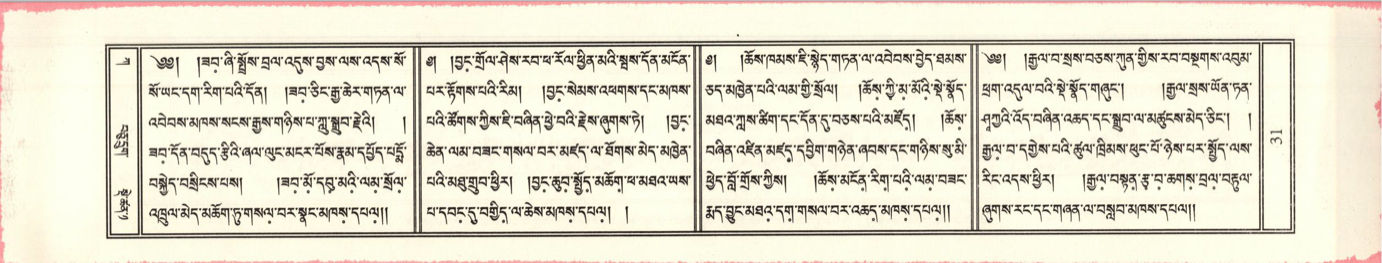 ༄༅། །ཟབ་ཞི་སྤྲོས་བྲལ་འདུས་བྱས་ལས་འདས་སོ་
སོ་ཡང་དག་རིག་པའི་དོན། །ཟབ་ཅིང་རྒྱ་ཆེར་གཏན་ལ་
འབེབས་མཁས་སངས་རྒྱས་གཉིས་པ་ཀླུ་སྒྲུབ་རྗེའི། །
ཟབ་དོན་བདུད་རྩིའི་ཞལ་ལུང་མངར་པོས་རྣམ་དཔྱོད་པདྨོ་
བསྐྱེད་བསྲིངས་པས། །ཟབ་མོ་དབུ་མའི་ལམ་སྲོལ་
འཁྲུལ་མེད་མཆོག་ཏུ་གསལ་བར་སྣང་མཁས་དཔལ།།
༄། །བྱང་གྲོལ་ཤེས་རབ་ཕ་རོལ་ཕྱིན་མའི་སྦས་དོན་མངོན་
པར་རྟོགས་པའི་རིམ། །བྱང་སེམས་འཕགས་དང་མཁས་
པའི་ཚོགས་ཀྱིས་ཇི་བཞིན་ཕྱེ་བའི་རྗེས་ཞུགས་ཏེ། །བྱང་
ཆེན་ལམ་བཟང་གསལ་བར་མཛད་ལ་ཐོགས་མེད་མཁྱེན་
པའི་མཐུ་གྲུབ་ཕྱིར། །བྱང་ཆུབ་སྤྱོད་མཆོག་ཕ་མཐའ་ཡས་
པ་དབང་དུ་བགྱིད་ལ་ཆེས་མཁས་དཔལ། །
༄། །ཆོས་ཁམས་ཇི་སྙེད་གཏན་ལ་འབེབས་བྱེད་ཐམས་
ཅད་མཁྱེན་པའི་ལམ་གྱི་སྲོལ། །ཆོས་ཀྱི་མ་མོའི་སྡེ་སྣོད་
མཐའ་ཀླས་ཚིག་དང་དོན་དུ་བཅས་པའི་མཛོད། །ཆོས་
བཞིན་འཛིན་མཛད་དབྱིག་གཉེན་ཞབས་དང་གཉིས་སུ་མི་
ཕྱེད་བློ་གྲོས་ཀྱིས། །ཆོས་མངོན་རིག་པའི་ལམ་བཟང་
རྨད་བྱུང་མཐའ་དག་གསལ་བར་འཆད་མཁས་དཔལ།།
༄༅། །རྒྱལ་བ་སྲས་བཅས་ཀུན་གྱིས་རབ་བསྔགས་འབུམ་
ཕྲག་འདུལ་བའི་སྡེ་སྣོད་གཞུང༌། །རྒྱལ་སྲས་ཡོན་ཏན་
ཤཱཀྱའི་འོད་བཞིན་འཆད་དང་སྒྲུབ་ལ་མཚུངས་མེད་ཅིང༌། །
རྒྱལ་བ་དགྱེས་པའི་ཚུལ་ཁྲིམས་ཕུང་པོ་ཉེས་པར་སྤྱོད་ལས་
རིང་འདས་ཕྱིར། །རྒྱལ་བསྟན་རྩ་བ་ཆགས་བྲལ་བརྟུལ་
ཞུགས་རང་དང་གཞན་ལ་བསླབ་མཁས་དཔལ།།
31